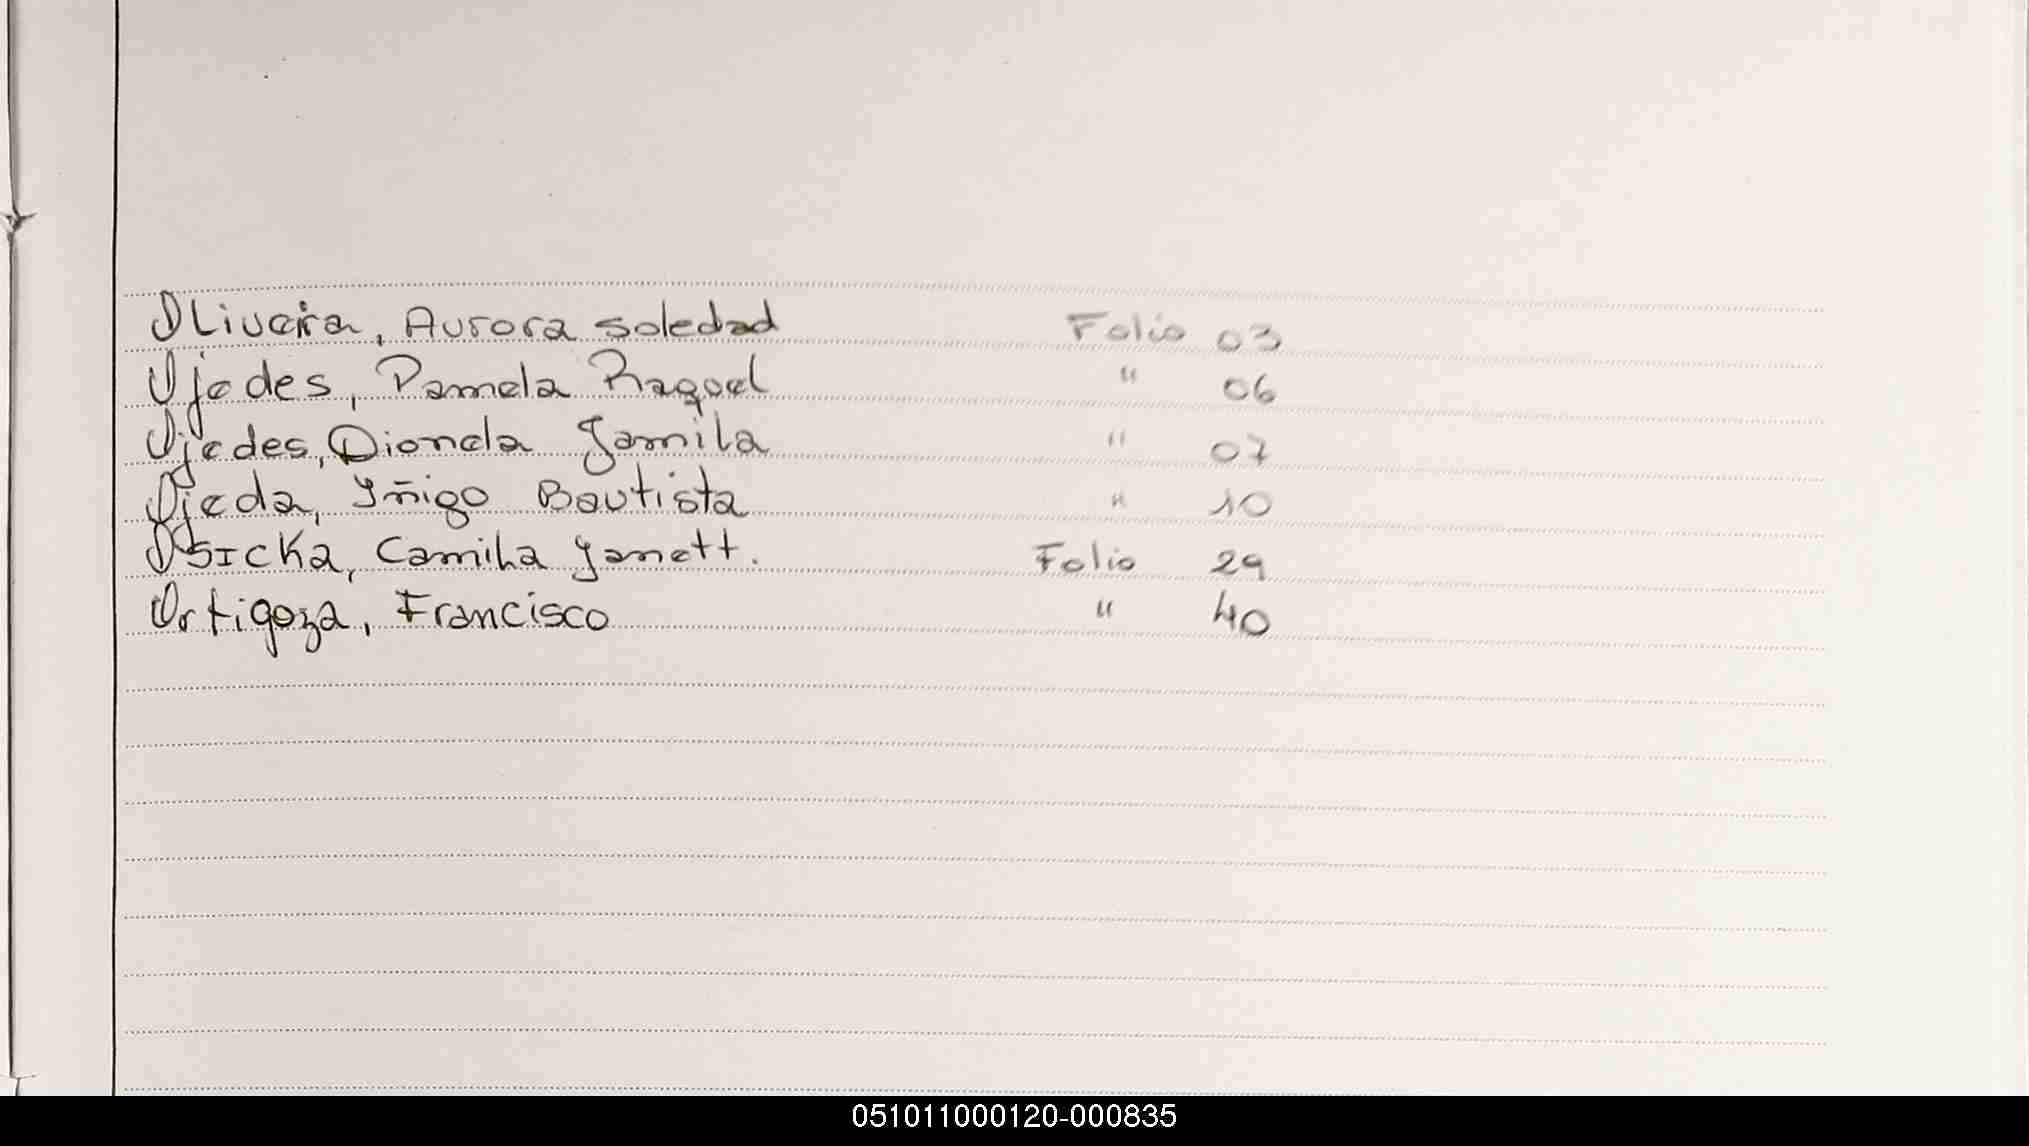 Oliveira, Aurora Soledad Folio 03
Ojedes, Pamela Raquel " 06
Ojedes, Dionela Jamila " 07
Ojeda, Yñigo Bautista " 10
OSICKA, Camila Janett. Folio 29
Ortigoza, Francisco " 40
051011000120-000835